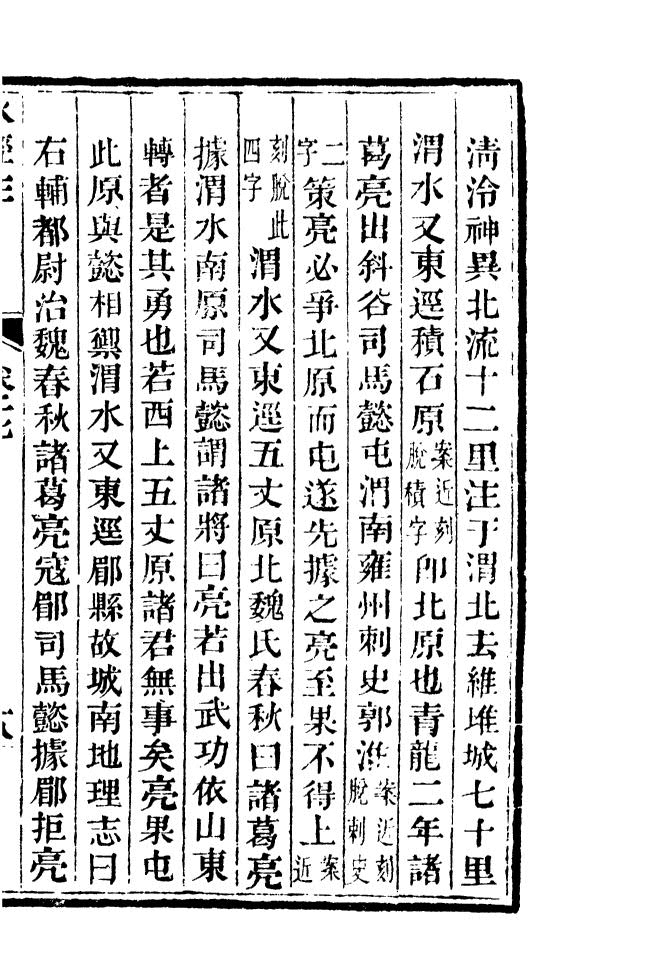 淸泠神異北流十二里注于渭北去維堆城七十里
渭水又東逕積石原案近刻脫積字卽北原也靑龍二年諸
葛亮出斜谷司馬懿屯渭南雍州刺史郭淮案近刻脫刺史
二字策亮必爭北原而屯遂先據之亮至果不得上案近
刻脫此四字渭水又東逕五丈原北魏氏春秋曰諸葛亮
據渭水南原司馬懿謂諸將曰亮若出武功依山東
轉者是其勇也若西上五丈原諸君無事矣亮果屯
此原與懿相禦渭水又東逕郿縣故城南地理志曰
右輔都尉治魏春秋諸葛亮寇郿司馬懿據郿拒亮